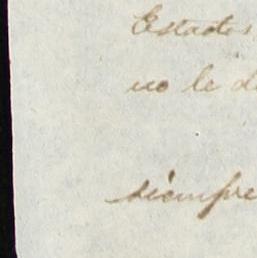 Estados
no le d
siempre